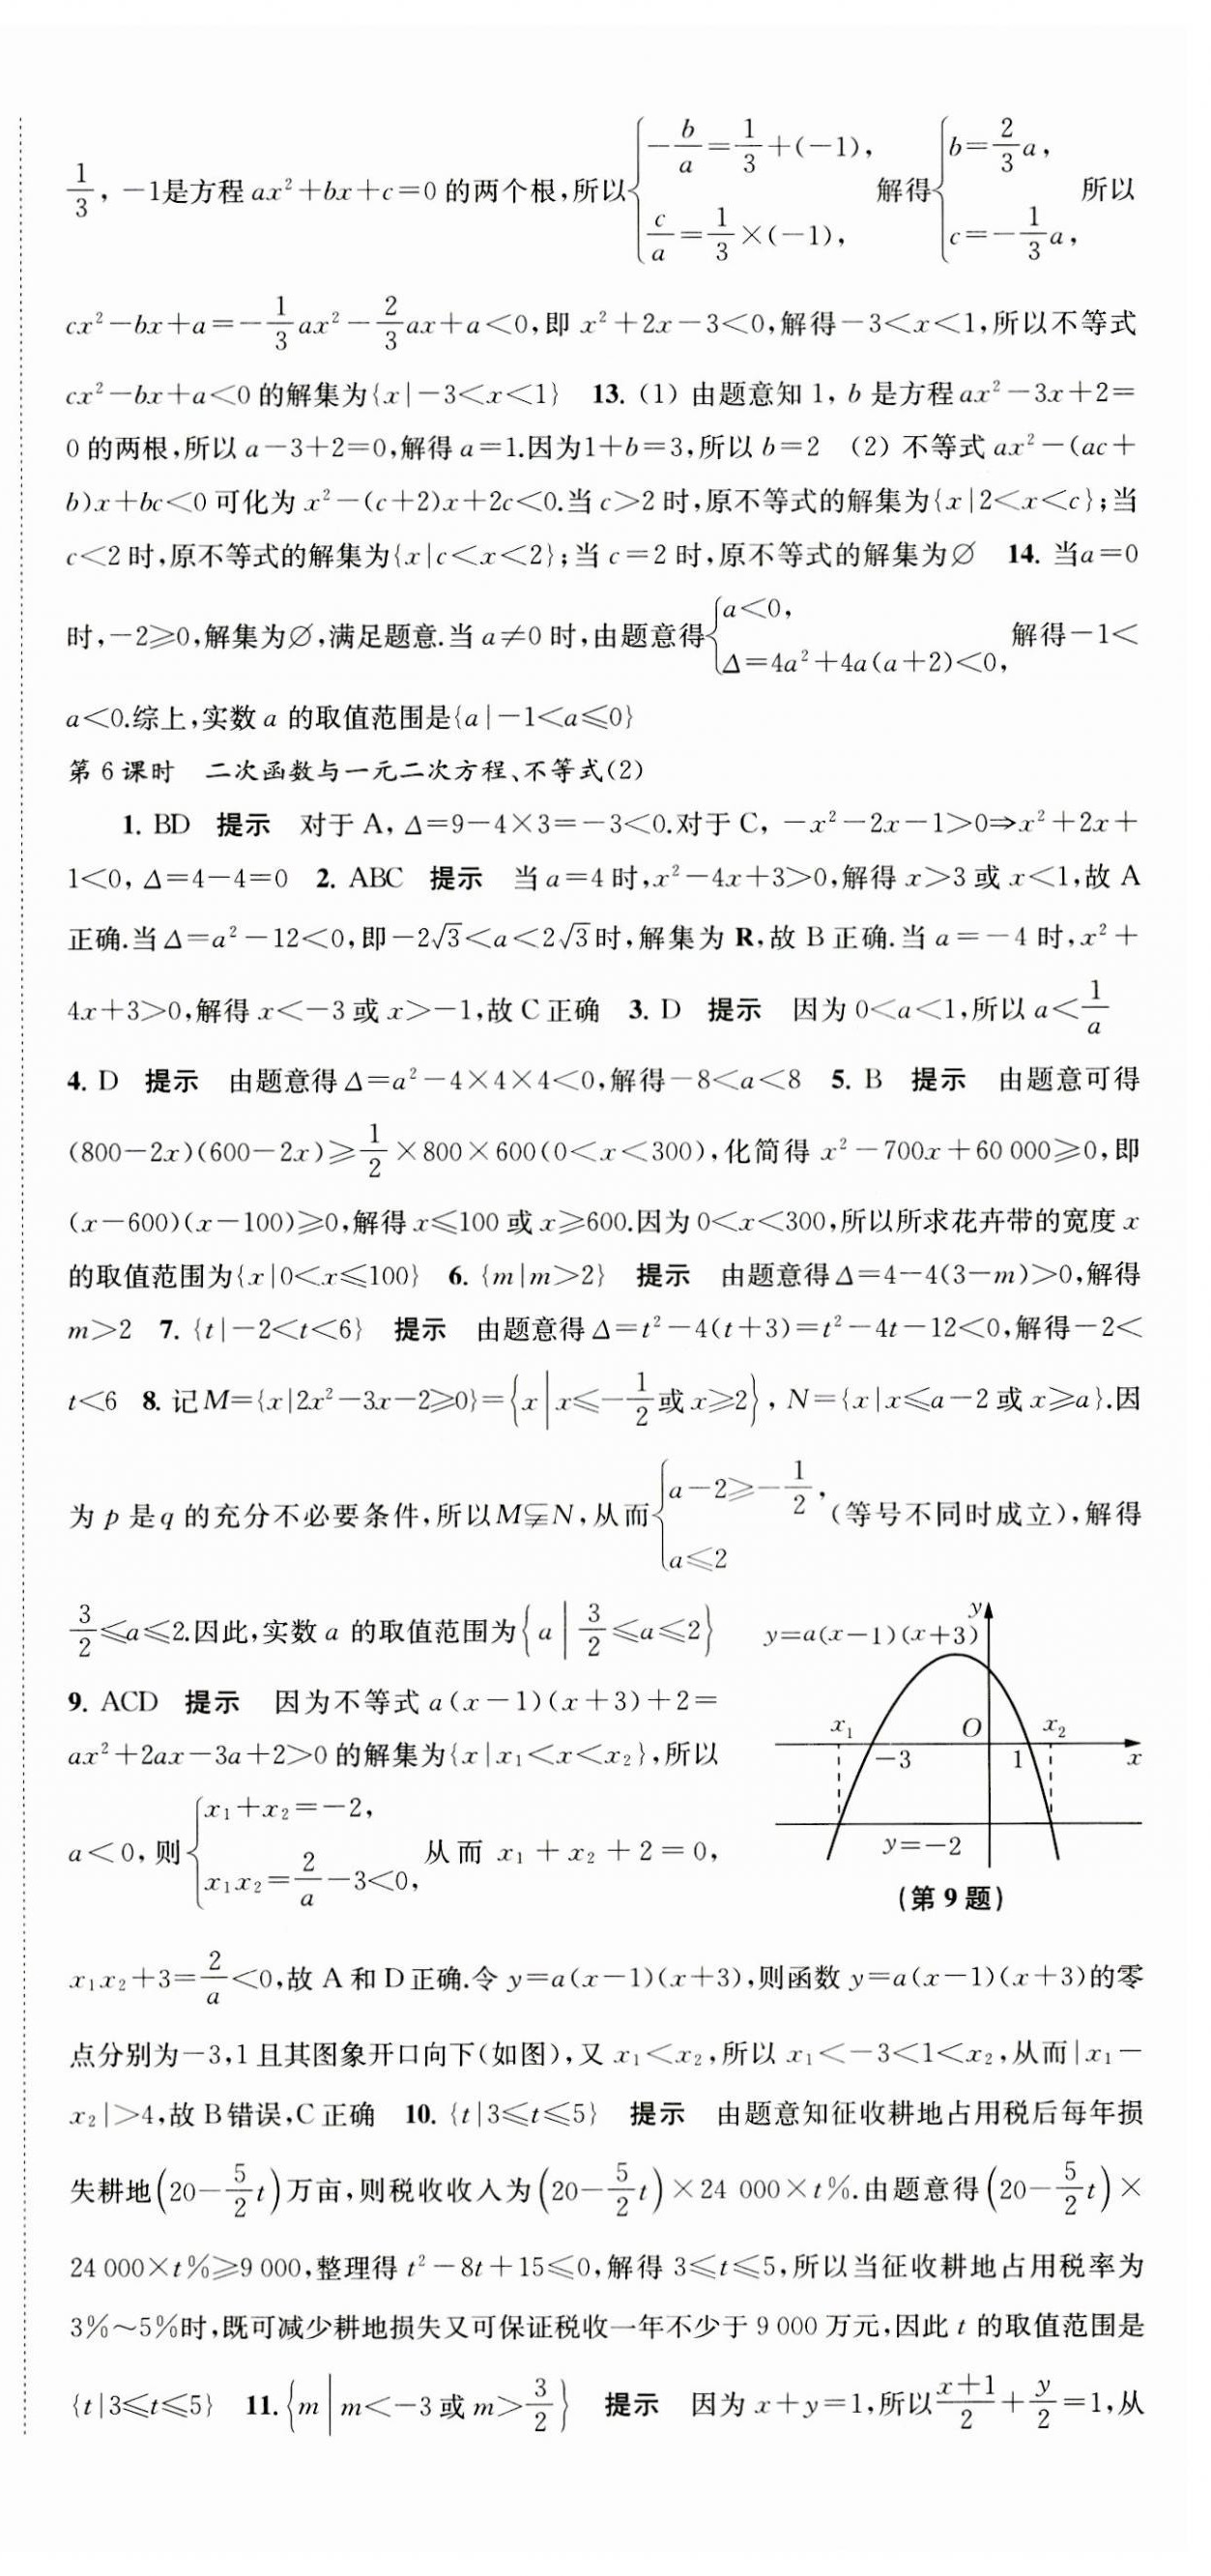 1/3, －1是方程 ax²＋bx＋c＝0 的两个根,所以{－b/a＝1/3＋(－1), c/a＝1/3×(－1), 解得{b＝2/3a, c＝－1/3a, 所以
cx²－bx＋a＝－1/3ax²－2/3ax＋a＜0,即 x²＋2x－3＜0,解得－3＜x＜1,所以不等式
cx²－bx＋a＜0 的解集为{x|－3＜x＜1} 13. (1) 由题意知 1, b 是方程 ax²－3x＋2＝
0 的两根,所以 a－3＋2＝0,解得 a＝1.因为1＋b＝3,所以 b＝2 (2) 不等式 ax²－(ac＋
b)x＋bc＜0 可化为 x²－(c＋2)x＋2c＜0.当 c＞2 时,原不等式的解集为{x|2＜x＜c};当
c＜2 时,原不等式的解集为{x|c＜x＜2};当 c＝2 时,原不等式的解集为∅ 14. 当a＝0
时,－2≥0,解集为∅,满足题意.当 a≠0 时,由题意得{a＜0, Δ＝4a²＋4a(a＋2)＜0, 解得－1＜
a＜0.综上,实数 a 的取值范围是{a|－1＜a≤0}
第 6 课时 二次函数与一元二次方程、不等式(2)
1. BD 提示 对于 A, Δ＝9－4×3＝－3＜0.对于 C, －x²－2x－1＞0⇒x²＋2x＋
1＜0, Δ＝4－4＝0 2. ABC 提示 当 a＝4 时,x²－4x＋3＞0,解得 x＞3 或 x＜1,故 A
正确.当 Δ＝a²－12＜0,即－2√3＜a＜2√3时,解集为 R,故 B 正确.当 a＝－4 时,x²＋
4x＋3＞0,解得 x＜－3 或 x＞－1,故 C 正确 3. D 提示 因为 0＜a＜1,所以 a＜1/a
4. D 提示 由题意得 Δ＝a²－4×4×4＜0,解得－8＜a＜8 5. B 提示 由题意可得
(800－2x)(600－2x)≥1/2×800×600(0＜x＜300),化简得 x²－700x＋60 000≥0,即
(x－600)(x－100)≥0,解得 x≤100 或 x≥600.因为 0＜x＜300,所以所求花卉带的宽度 x
的取值范围为{x|0＜x≤100} 6. {m|m＞2} 提示 由题意得 Δ＝4－4(3－m)＞0,解得
m＞2 7. {t|－2＜t＜6} 提示 由题意得 Δ＝t²－4(t＋3)＝t²－4t－12＜0,解得－2＜
t＜6 8. 记 M＝{x|2x²－3x－2≥0}＝{x|x≤－1/2或 x≥2}, N＝{x|x≤a－2 或 x≥a}.因
为 p 是 q 的充分不必要条件,所以 M⫋N,从而{a－2≥－1/2, a≤2 (等号不同时成立),解得
3/2≤a≤2.因此,实数 a 的取值范围为{a|3/2≤a≤2}
9. ACD 提示 因为不等式 a(x－1)(x＋3)＋2＝
ax²＋2ax－3a＋2＞0 的解集为{x|x₁＜x＜x₂},所以
a＜0, 则{x₁＋x₂＝－2, x₁x₂＝2/a－3＜0, 从而 x₁＋x₂＋2＝0,
y
y＝a(x－1)(x＋3)
x₁
O
x₂
－3
1
x
y＝－2
(第 9 题)
x₁x₂＋3＝2/a＜0,故 A 和 D 正确.令 y＝a(x－1)(x＋3),则函数 y＝a(x－1)(x＋3)的零
点分别为－3,1 且其图象开口向下(如图),又 x₁＜x₂,所以 x₁＜－3＜1＜x₂,从而|x₁－
x₂|＞4,故 B 错误,C 正确 10. {t|3≤t≤5} 提示 由题意知征收耕地占用税后每年损
失耕地(20－5/2t)万亩,则税收收入为(20－5/2t)×24 000×t%.由题意得(20－5/2t)×
24 000×t%≥9 000,整理得 t²－8t＋15≤0,解得 3≤t≤5,所以当征收耕地占用税率为
3%～5%时,既可减少耕地损失又可保证税收一年不少于 9 000 万元,因此 t 的取值范围是
{t|3≤t≤5} 11. {m|m＜－3 或 m＞3/2} 提示 因为 x＋y＝1,所以(x＋1)/2＋y/2＝1,从